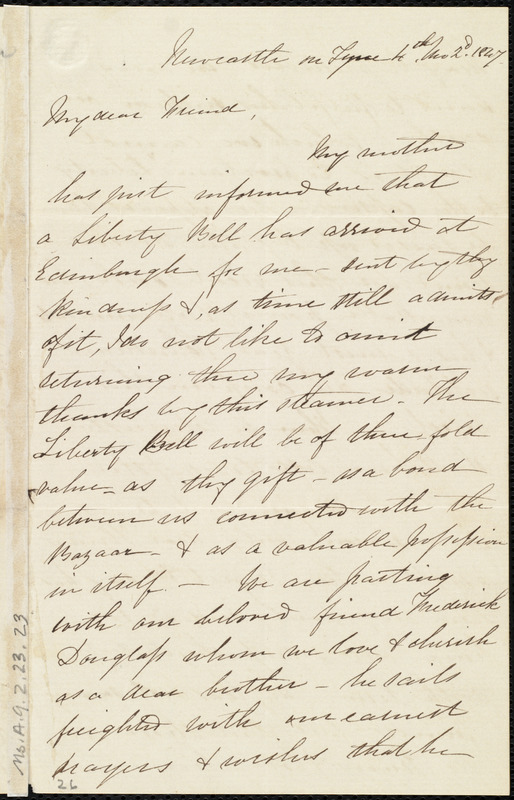 Newcastle on Tyne 4th Mo 2d. 1847
My dear Friend,
My mother
has just informed me that
a Liberty Bell has arrived at
Edinburgh for me - sent by thy
kindness &, as time still admits
of it, I do not like to omit
returning thee my warm
thanks by this steamer - The
Liberty Bell will be of three fold
value - as thy gift - as a bond
between us connected with the
Bazaar - & as a valuable possession
in itself. - We are parting
with our beloved friend Frederick
Douglass whom we love & cherish
as a dear brother - he sails
freighted with our earnest
prayers & wishes that he
Ms. A. 9. 2. 23. 23
26